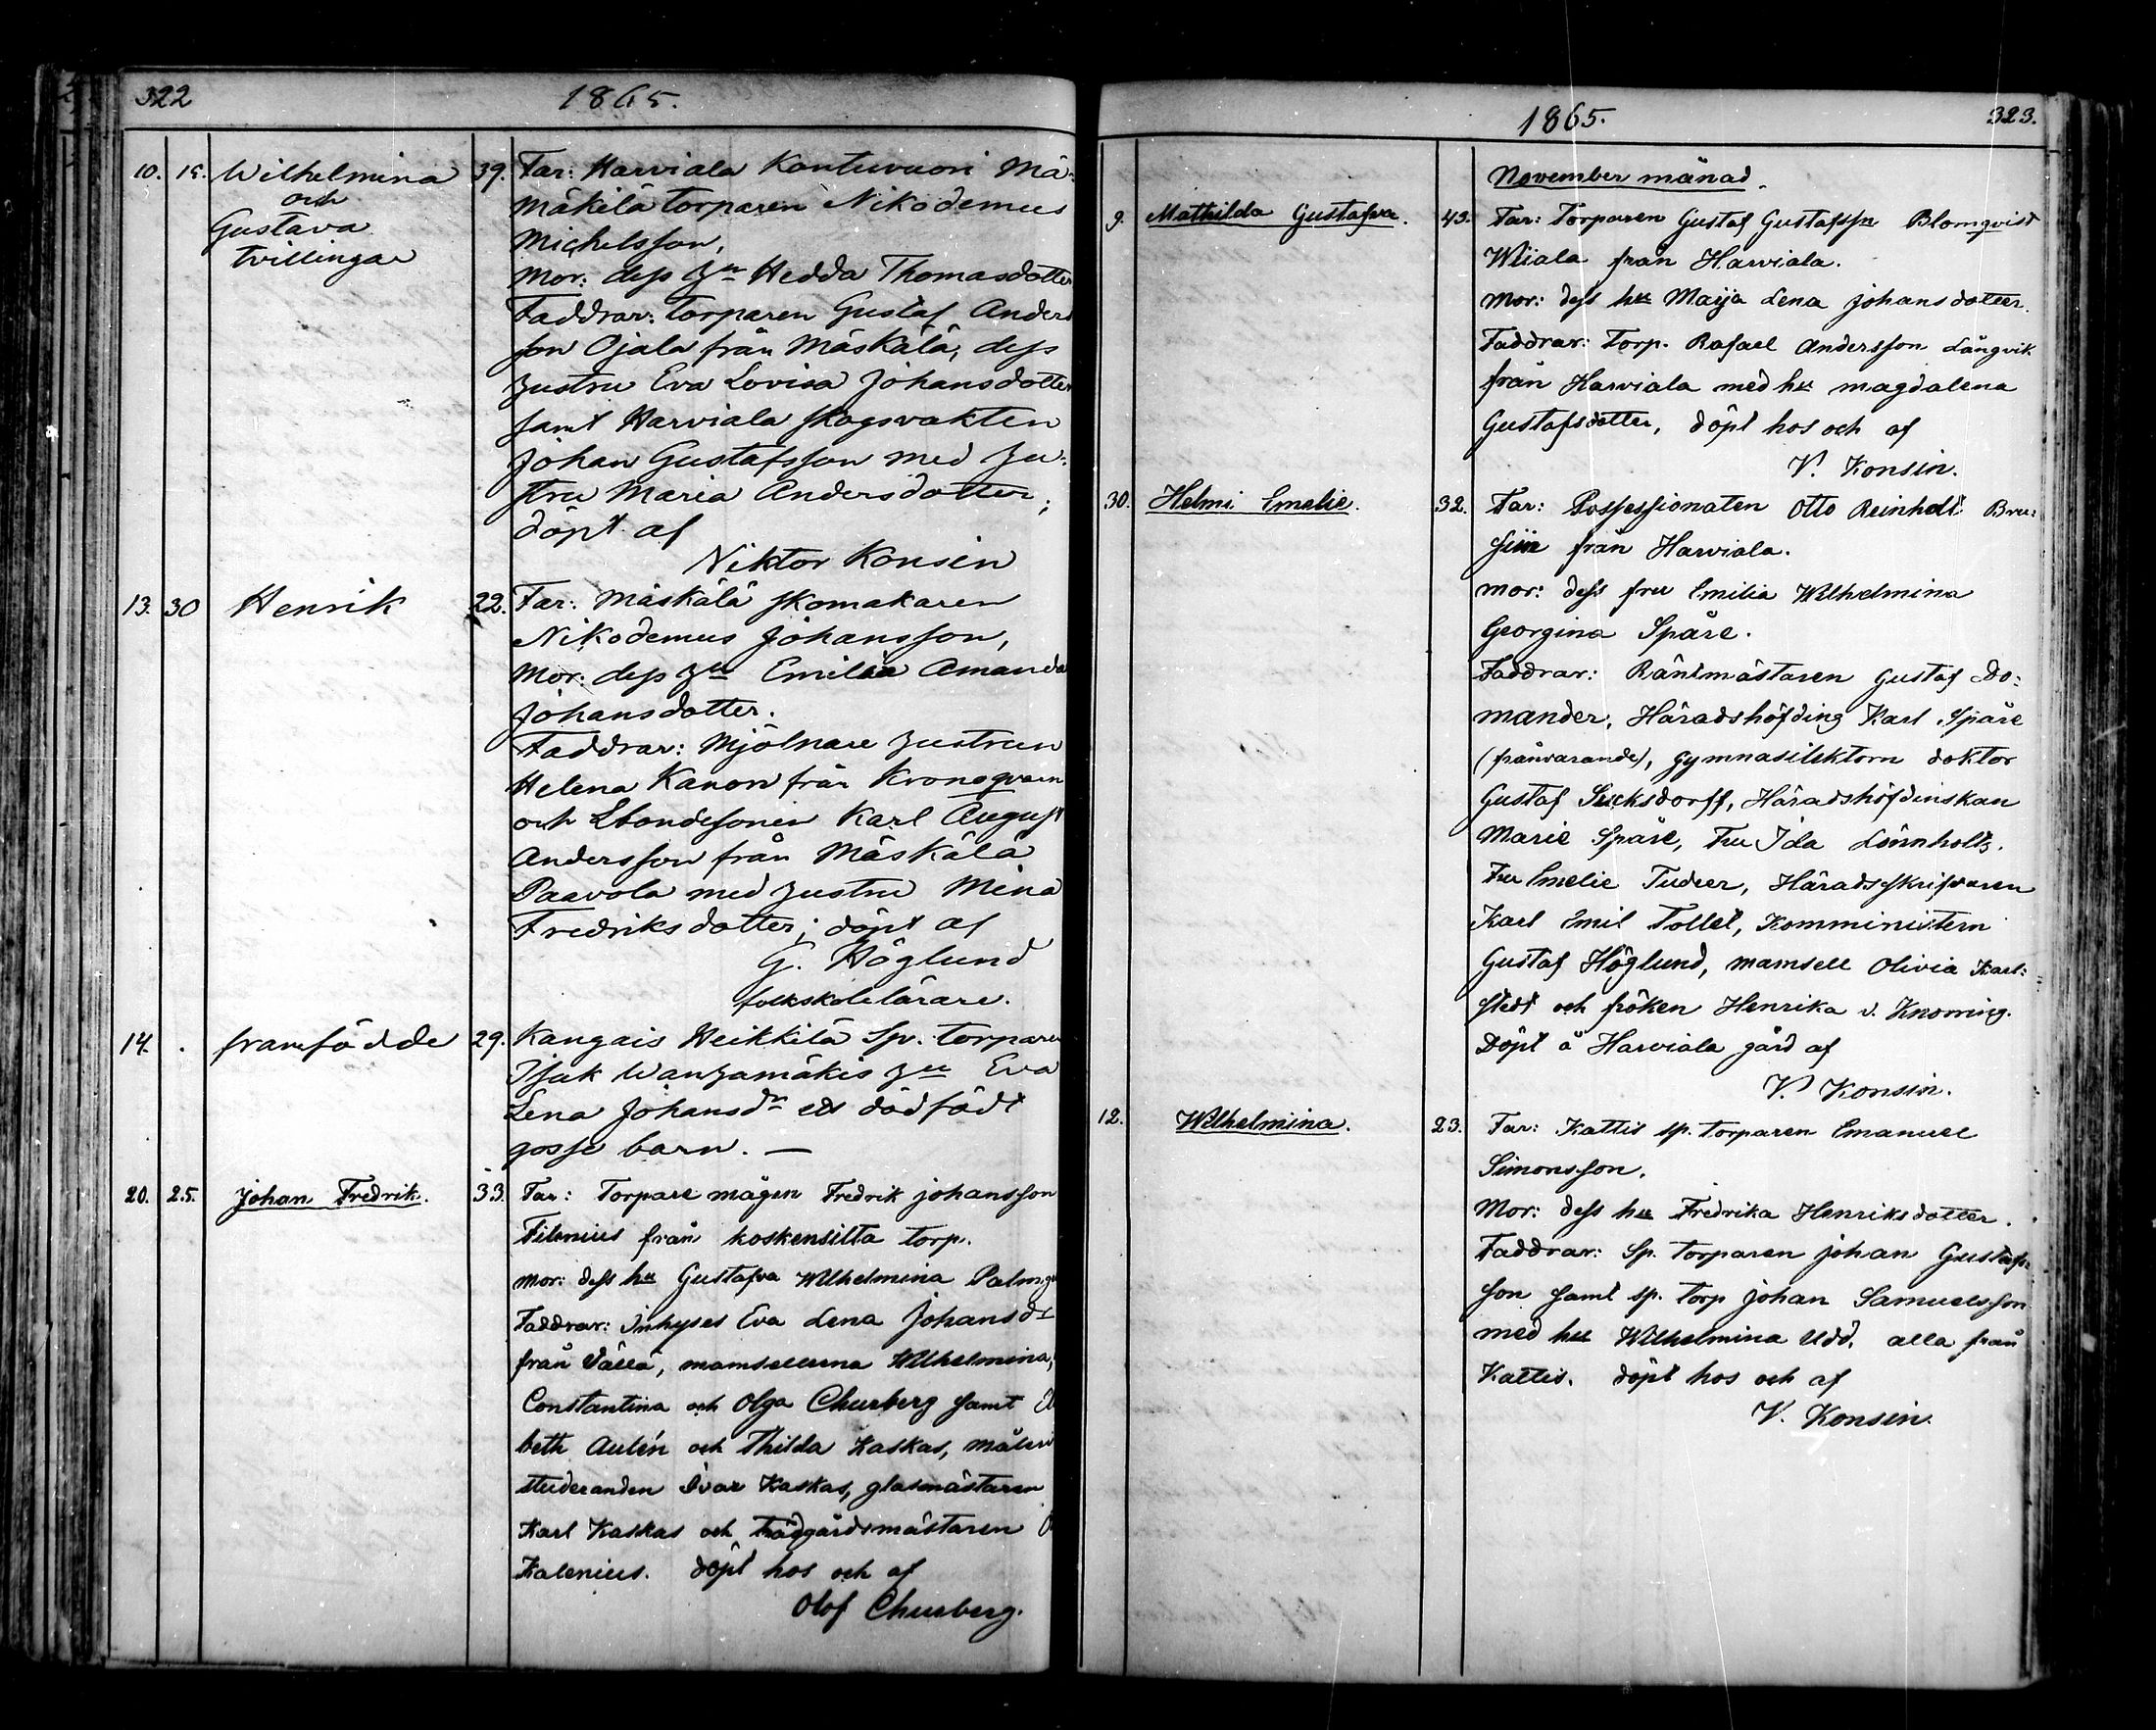 322 1865.
10. 19. Wilhelmina 39. Far: Harviala Kontuvuori Mä-
och Mäkilä torparen Nikodemus
Gustava Michelsson,
tvillingar Mor: dess Hu Hedda Thomasdotter
Faddrar: torparen Gustaf Anders
son Ojala från Mäskälä, dess
hustru Eva Lovisa Johansdotter
samt Harviala skogsvakten
Johan Gustafsson med hu-
stru Maria Andersdotter;
döpt af
Viktor Konsin
13. 30 Henrik 22. Far: Mäskälä skomakaren
Nikodemus Johansson,
Mor: dess hu Emilia Amanda
Johansdotter.
Faddrar: Mjölnare hustrun
Helena Kanon från Kronoqvarn
och Lbondesonen Karl August
Andersson från Mäskälä
Paavola med hustru Mina
Fredriksdotter; döpt af
G. Höglund
folkskolelärare.
14. . framfödde 29. Kangais Heikkilä Sp. torparen
Isak Wanhamäkis hu Eva
Lena Johansdr ett dödfödt
gosse barn. —
20. 25. Johan Fredrik. 33. Far: Torpare mågen Fredrik Johansson
Filenius från Koskensilta torp.
Mor: dess hu Gustafva Wilhelmina Palmg
Faddrar: Inhyses Eva Lena Johansdr
från mamsellerna Wilhelmina,
Constantina och Olga Churberg samt
beth Aulén och Thilda Kaskas,
studeranden Ivar Kaskas, glasmästaren
Karl Kaskas och trädgårdsmästaren
Kalenius. döpt hos och af
Olof Churberg.
1865. 323.
November månad.
9. Mathilda Gustafva. 43. Far: Torparen Gustaf Gustafsson Blomqvist
Wiiala från Harviala.
Mor: dess hu Maija Lena Johansdotter.
Faddrar: Torp. Rafael Andersson Långvik
från Harviala med hu Magdalena
Gustafsdotter, döpt hos och af
V. Konsin.
30. Helmi Emelie. 32. Far: Possessionaten Otto Reinholt Bru-
siin från Harviala.
Mor: dess fru Emilia Wilhelmina
Georgina Spåre.
Faddrar: Räntmästaren Gustaf Do-
mander, Häradshöfding Karl Spåre
(frånvarande), gymnasilektorn doktor
Gustaf Sucksdorff, Häradshöfdinskan
Marie Spåre, Fru Ida Lönnholtz.
Fru Emelie Tudeer, Häradsskrifvaren
Karl Emil Tollet, Komministern
Gustaf Höglund, mamsell Olivia Karl-
stedt och fröken Henrika v. Knorring.
Döpt å Harviala gård af
V. Konsin.
12. Wilhelmina. 23. Far: Kattis sp. torparen Emanuel
Simonsson.
Mor: dess hu Fredrika Henriksdotter.
Faddrar: Sp. torparen Johan Gustafs-
son samt sp. torp Johan Samuelsson
med hu Wilhelmina Udd. alla från
Kattis. döpt hos och af
V. Konsin.